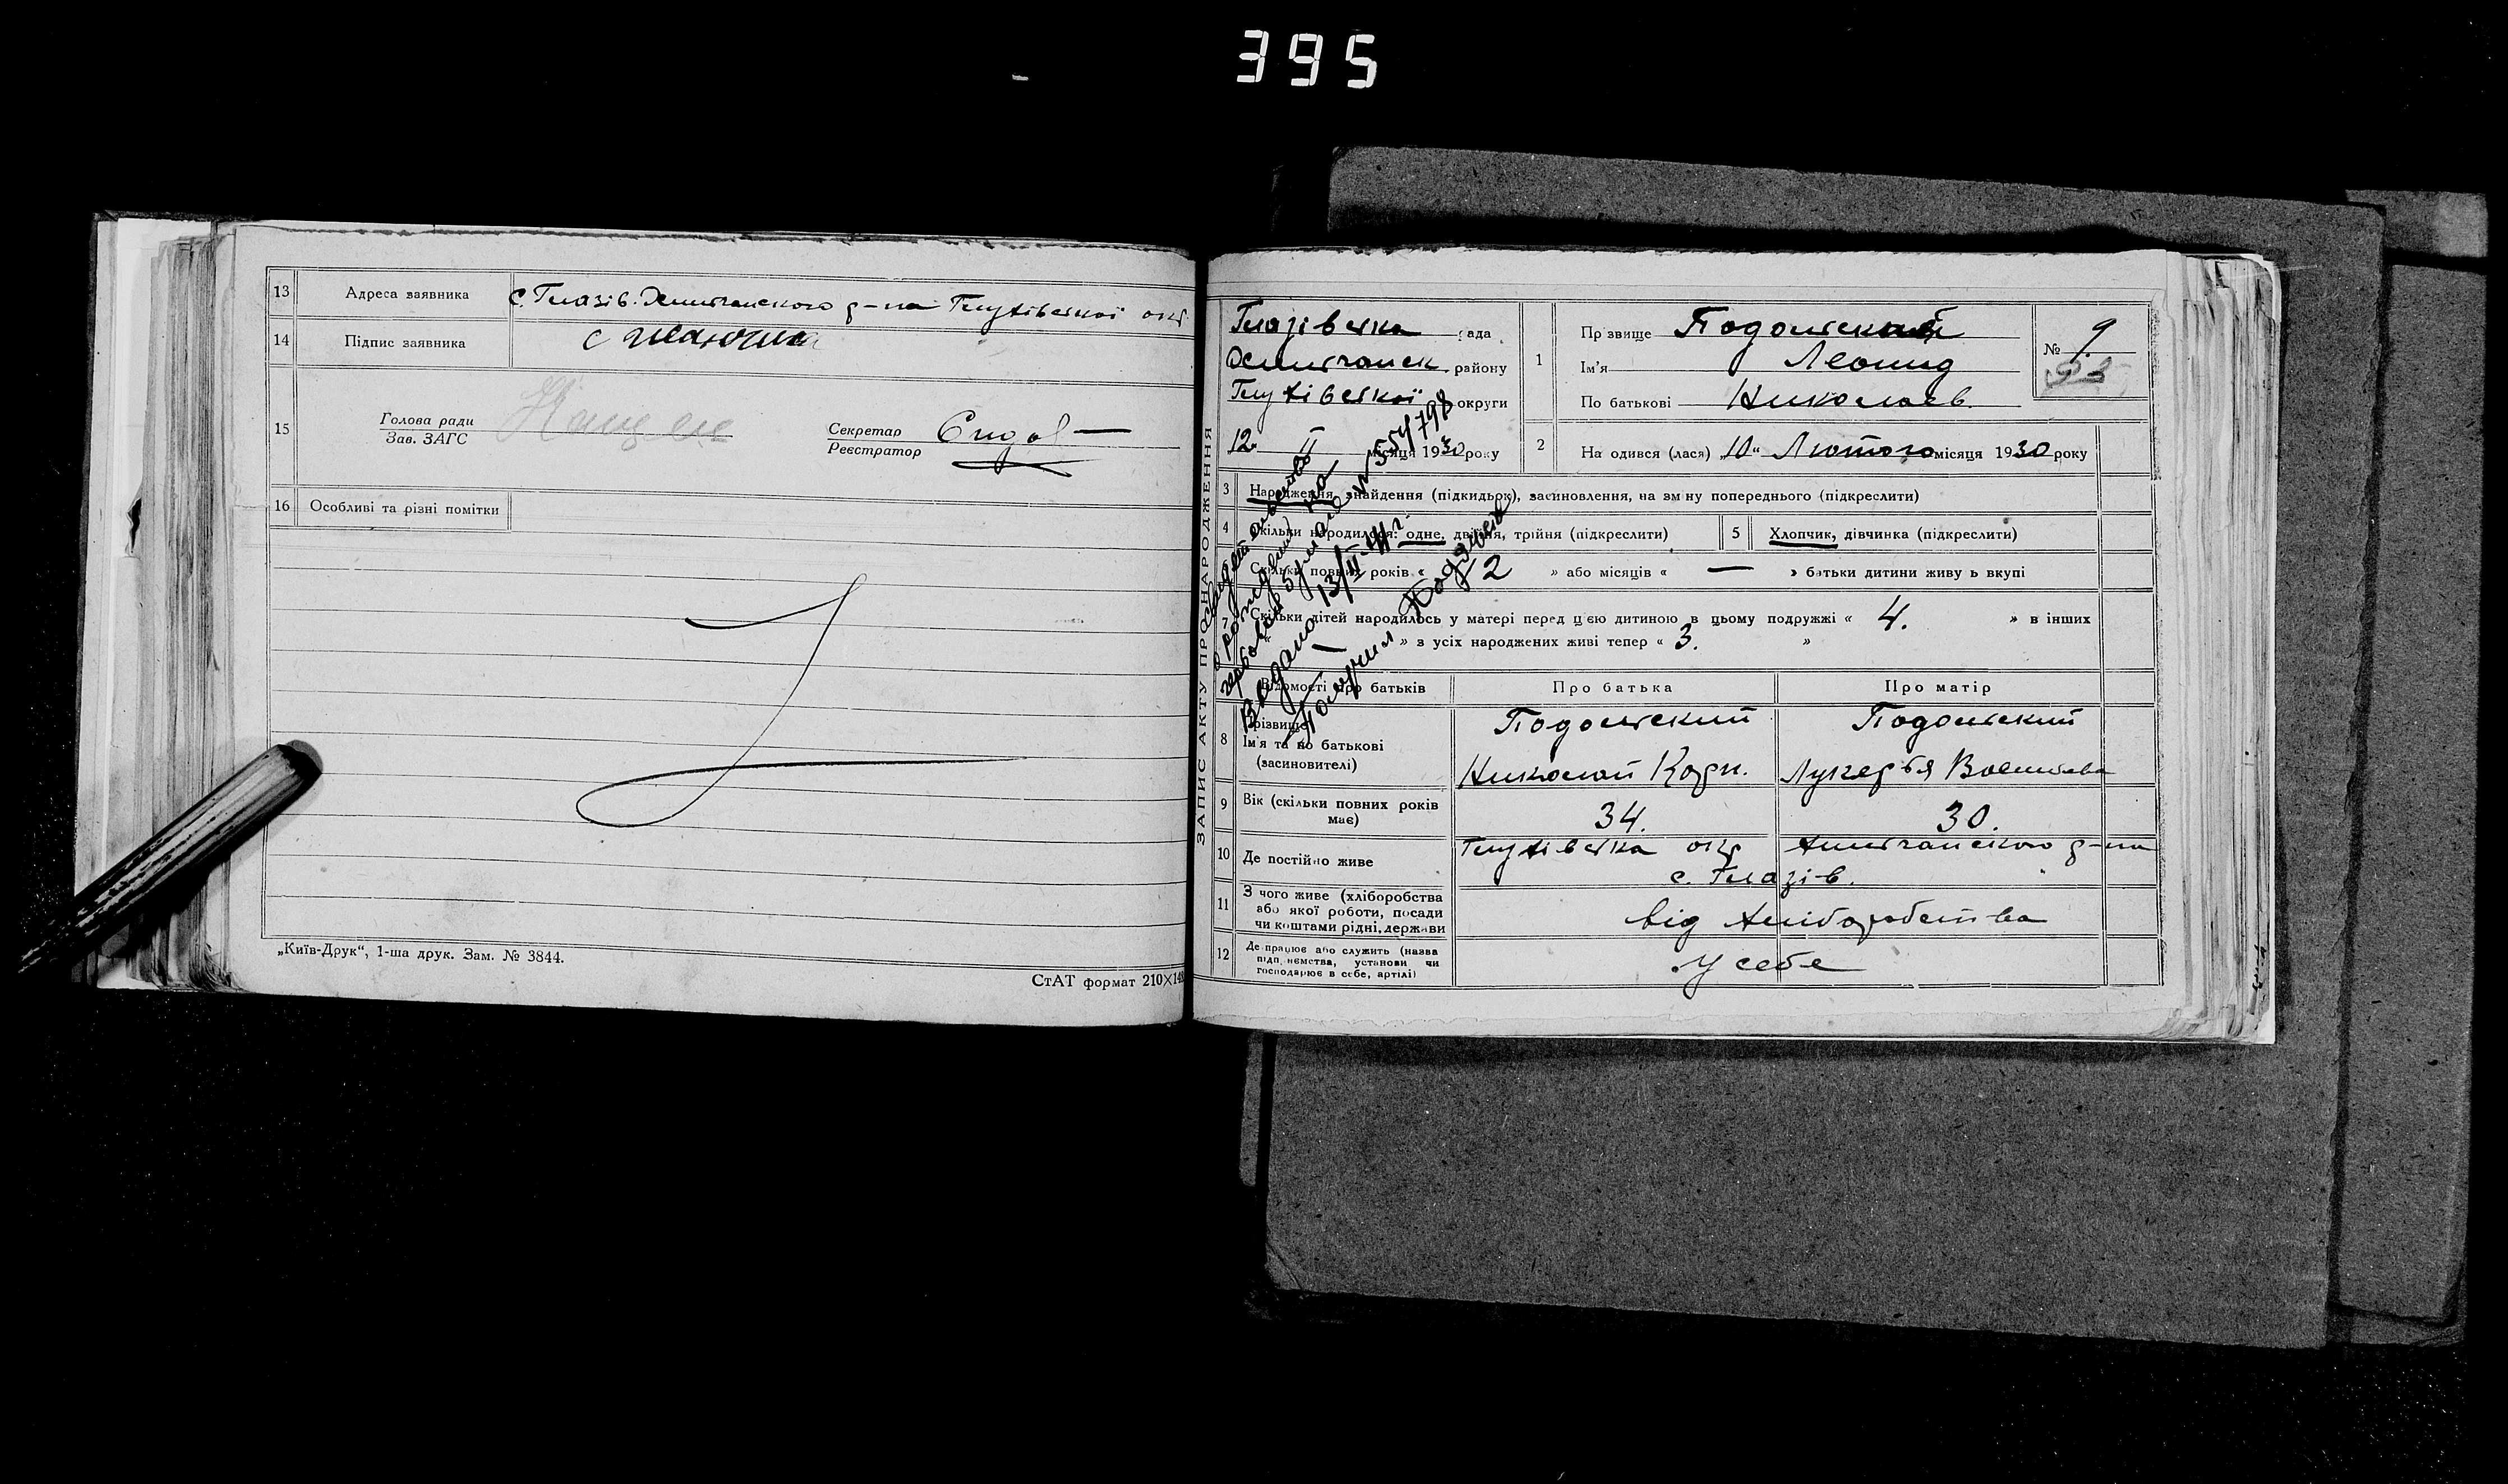 395
13 Адреса заявника с. Глазів. Хильчанского р-на Глухівської окр.
14 Підпис заявника
15 Голова ради
Зав. ЗАГС
Секретар
Реєстратор
16 Особливі та різні помітки
„Київ-Друк“, 1-ша друк. Зам. № 3844.
СтАТ формат 210×148
ЗАПИС АКТУ ПРО НАРОДЖЕННЯ
Глазівська рада
Хильчанск. району
Глухівської округи
12 II місяця 1930 року
1 Прізвище Подольский
Ім'я Леонид
По батькові Николаев.
№ 9
93
2 Народився (лася) „10“ Лютого місяця 1930 року
3 Народження, знайдення (підкидьок), засиновлення, на зміну попереднього (підкреслити)
4 Скільки народилося: одне, двійня, трійня (підкреслити)
5 Хлопчик, дівчинка (підкреслити)
Скільки повних років « 2 » або місяців « — » батьки дитини живуть вкупі
7 Скільки дітей народилось у матері перед цією дитиною в цьому подружжі « 4. » в інших
« » з усіх народжених живі тепер « 3. »
свидетельство
о рождении на
гербовой бумаге № 554798
Выдано 13/II-41 г.
Получил
Відомості про батьків Про батька Про матір
8 Прізвище
Ім'я та по батькові
(засиновителі)
Подольский
Николай Карп.
Подольский
Лукерья Васильева
9 Вік (скільки повних років має) 34. 30.
10 Де постійно живе Глухівська окр Хильчанского р-на
с. Глазів.
11 З чого живе (хліборобства
або якої роботи, посади
чи коштами рідні, держави
від хліборобства
12 Де працює або служить (назва
підприємства, установи чи
господарює в себе, артілі)
У себе